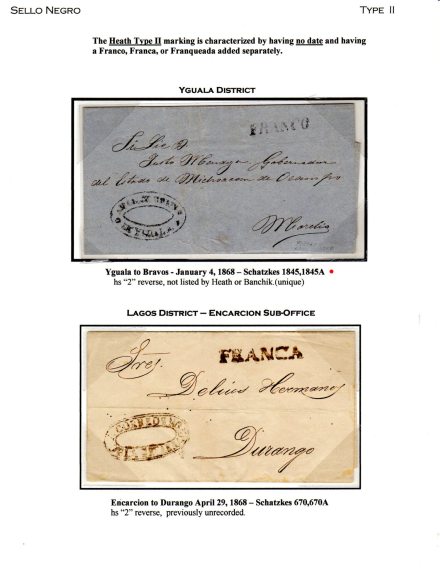 SELLO NEGRO
TYPE II
The Heath Type II marking is characterized by having no date and having
a Franco, Franca, or Franqueada added separately.
YGUALA DISTRICT
FRANCO
Sr Lic D
Justo Mendoza Gobernador
del Estado de Michoacan de Ocampo
Morelia
Yguala to Bravos - January 4, 1868 – Schatzkes 1845,1845A
hs "2" reverse, not listed by Heath or Banchik.(unique)
LAGOS DISTRICT – ENCARCION SUB-OFFICE
FRANCA
Sres.
Delius Hermanos
Durango
Encarcion to Durango April 29, 1868 – Schatzkes 670,670A
hs "2" reverse, previously unrecorded.